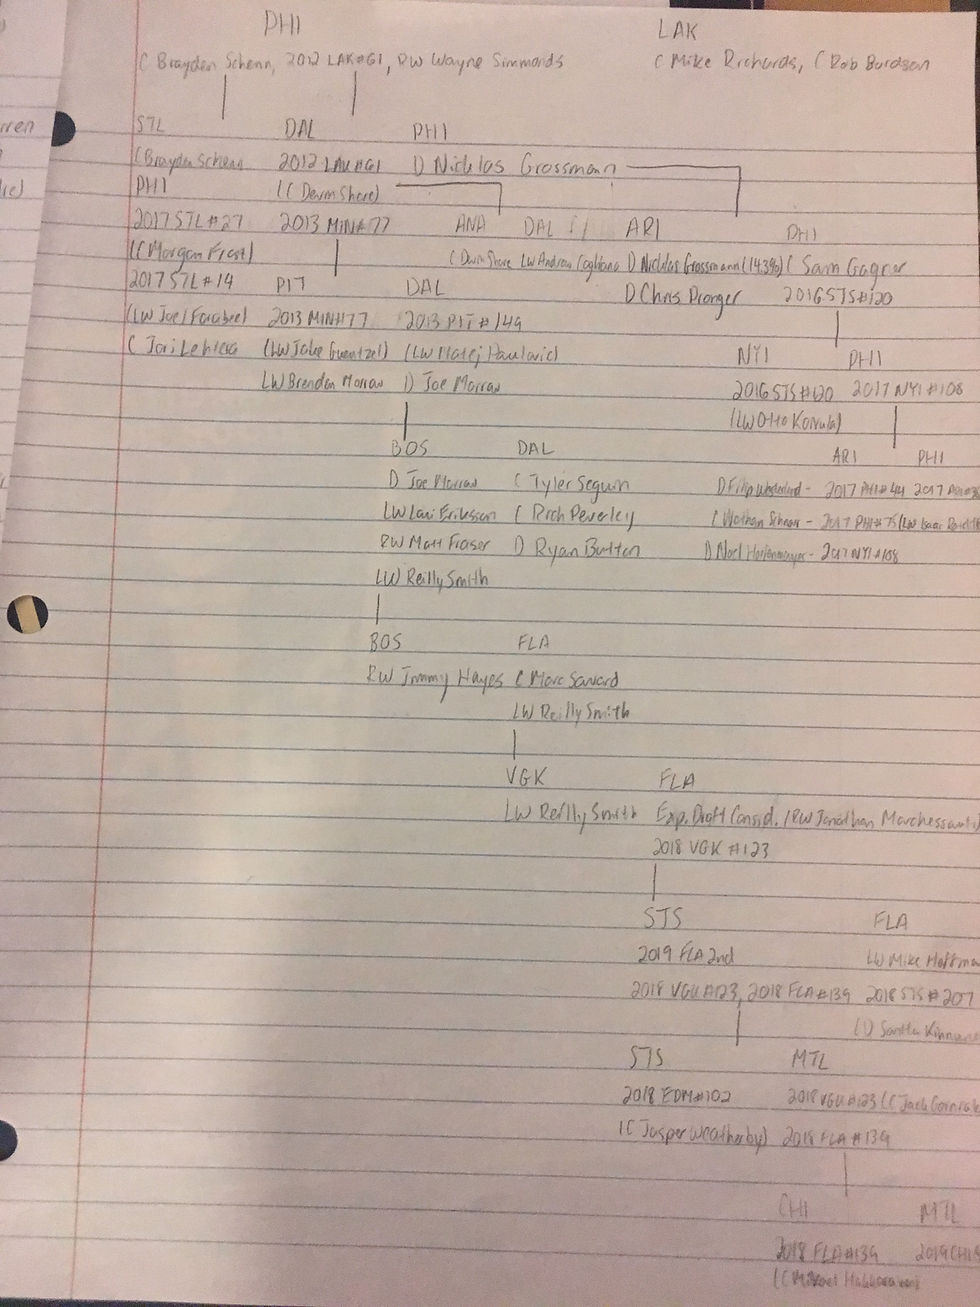 PHI LAK
C Brayden Schenn, 2012 LAK#61, RW Wayne Simmonds C Mike Richards, C Rob Bordson
STL DAL PHI
C Brayden Schenn 2012 LAK#61 D Nicklas Grossmann
PHI (C Devin Shore)
2017 STL#27 2013 MIN#77 ANA DAL ARI PHI
(C Morgan Frost) C Devin Shore LW Andrew Cogliano D Nicklas Grossmann (14.3%) C Sam Gagner
2017 STL#14 PIT DAL D Chris Pronger 2016 SJS#120
(LW Joel Farabee) 2013 MIN#77 2013 PIT#149
C Jori Lehtera (LW Jake Guentzel) (LW Matej Paulovic) NYI PHI
LW Brendan Morrow D Joe Morrow 2016 SJS#120 2017 NYI#108
(LW Otto Koivula)
BOS DAL ARI PHI
D Joe Morrow C Tyler Seguin D Filip Westerlund - 2017 PHI#44 2017
LW Loui Eriksson C Rich Peverley C Nathan Schnarr - 2017 PHI#75 (LW Isaac
RW Matt Fraser D Ryan Button D Noel Hoefenmayer - 2017 NYI#108
LW Reilly Smith
BOS FLA
RW Jimmy Hayes C Marc Savard
LW Reilly Smith
VGK FLA
LW Reilly Smith Exp. Draft Consid. (RW Jonathan Marchessault)
2018 VGK #123
SJS FLA
2019 FLA 2nd LW Mike Hoffma
2018 VGK#123, 2018 FLA#139 2018 SJS#207
(D Santtu Kinnune
SJS MTL
2018 EDM#102 2018 VGK#123 (C Jack Gorniak
(C Jasper Weatherby) 2018 FLA#139
CHI MTL
2018 FLA#139 2019 CHI
(C Mikael Hakkarainen